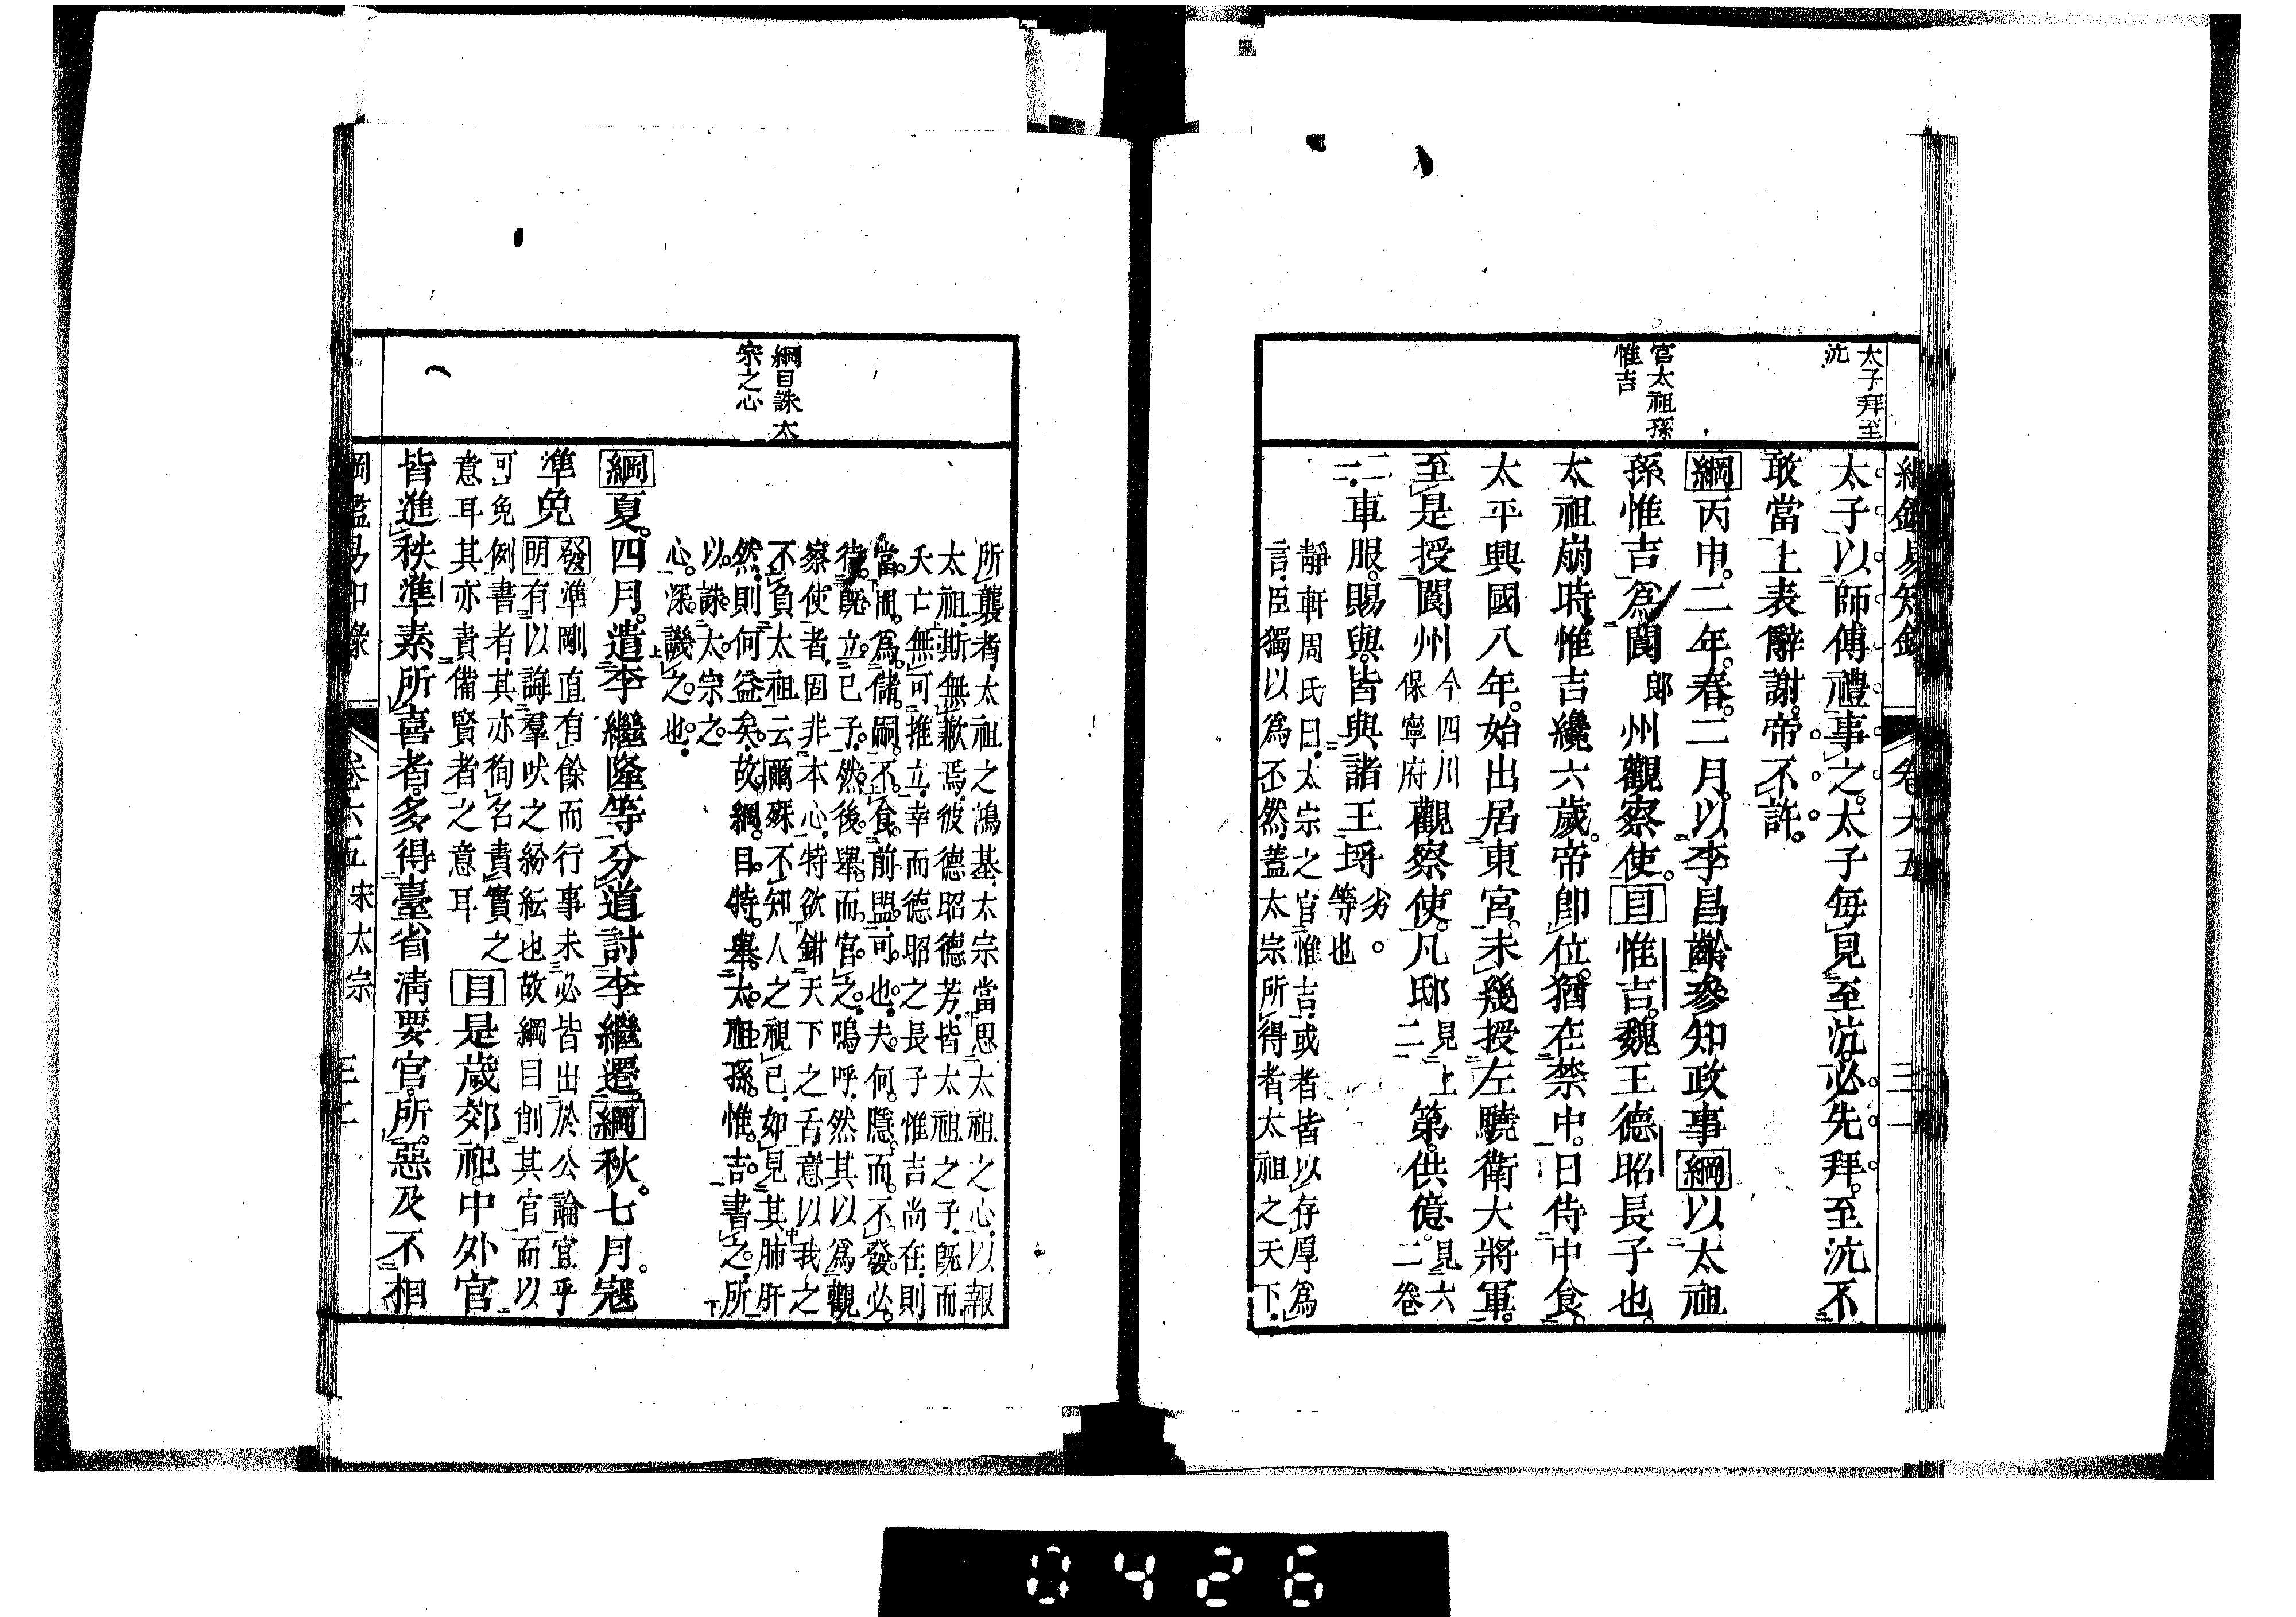 太子拜至
沆
太子以師傅禮事之太子每見至沆必先拜至沆不
敢當上表辭謝帝不許
綱丙申二年春二月以李昌齡參知政事綱以太祖
官太祖孫
惟吉
孫惟吉爲閬郎州觀察使目惟吉魏王德昭長子也
太祖崩時惟吉纔六歲帝卽位猶在禁中日侍中食
太平興國八年始出居東宮未幾授左驍衛大將軍
至是授閬州今四川保寧府觀察使凡邸見上二一第供億見六二卷
二一車服賜與皆與諸王埒劣等也
靜軒周氏曰太宗之官惟吉或者皆以存厚爲
言臣獨以爲不然蓋太宗所得者太祖之天下
所襲者太祖之鴻基太宗當思太祖之心以報
太祖斯無歉焉彼德昭德芳皆太祖之子旣而
夭亡無可推立幸而德昭之長子惟吉尚在則
當用爲儲嗣不食前盟可也夫何隱而不發必
待旣立己子然後舉而官之嗚呼然其以爲觀
察使者固非本心特欲鉗天下之舌意以我之
不負太祖云爾殊不知人之視己如見其肺肝
然則何益矣故綱目特舉太祖孫惟吉書之所
以誅太宗之
心深譏之也
綱目誅太
宗之心
綱夏四月遣李繼隆等分道討李繼遷綱秋七月寇
準免發明準剛直有餘而行事未必皆出於公論宜乎
有以誨羣吠之紛紜也故綱目削其官而以
可免例書者其亦徇名責實之
意耳其亦責備賢者之意耳
目是歲郊祀中外官
皆進秩準素所喜者多得臺省淸要官所惡及不相
綱鑑易知錄 卷六五 宋太宗 三二